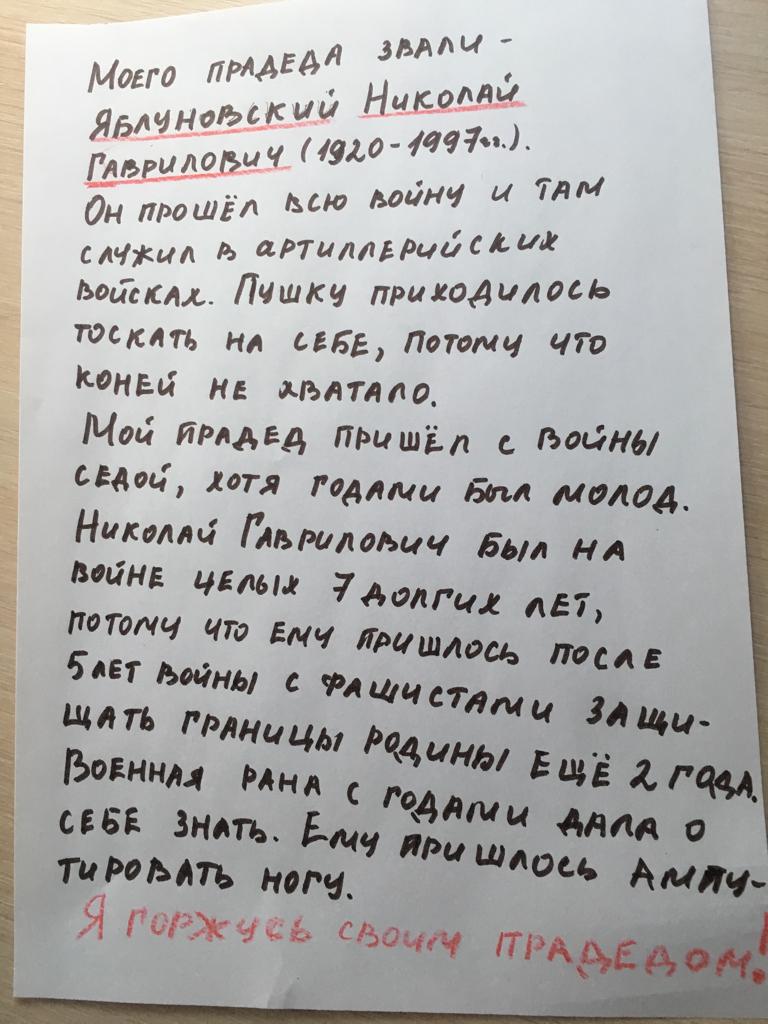 Моего прадеда звали -
Яблуновский Николай
Гаврилович (1920-1997гг.).
Он прошёл всю войну и там
служил в артиллерийских
войсках. Пушку приходилось
тоскать на себе, потому что
коней не хватало.
Мой прадед пришёл с войны
седой, хотя годами был молод.
Николай Гаврилович был на
войне целых 7 долгих лет,
потому что ему пришлось после
5 лет войны с фашистами защи-
щать границы родины ещё 2 года.
Военная рана с годами дала о
себе знать. Ему пришлось ампу-
тировать ногу.
Я горжусь своим прадедом!